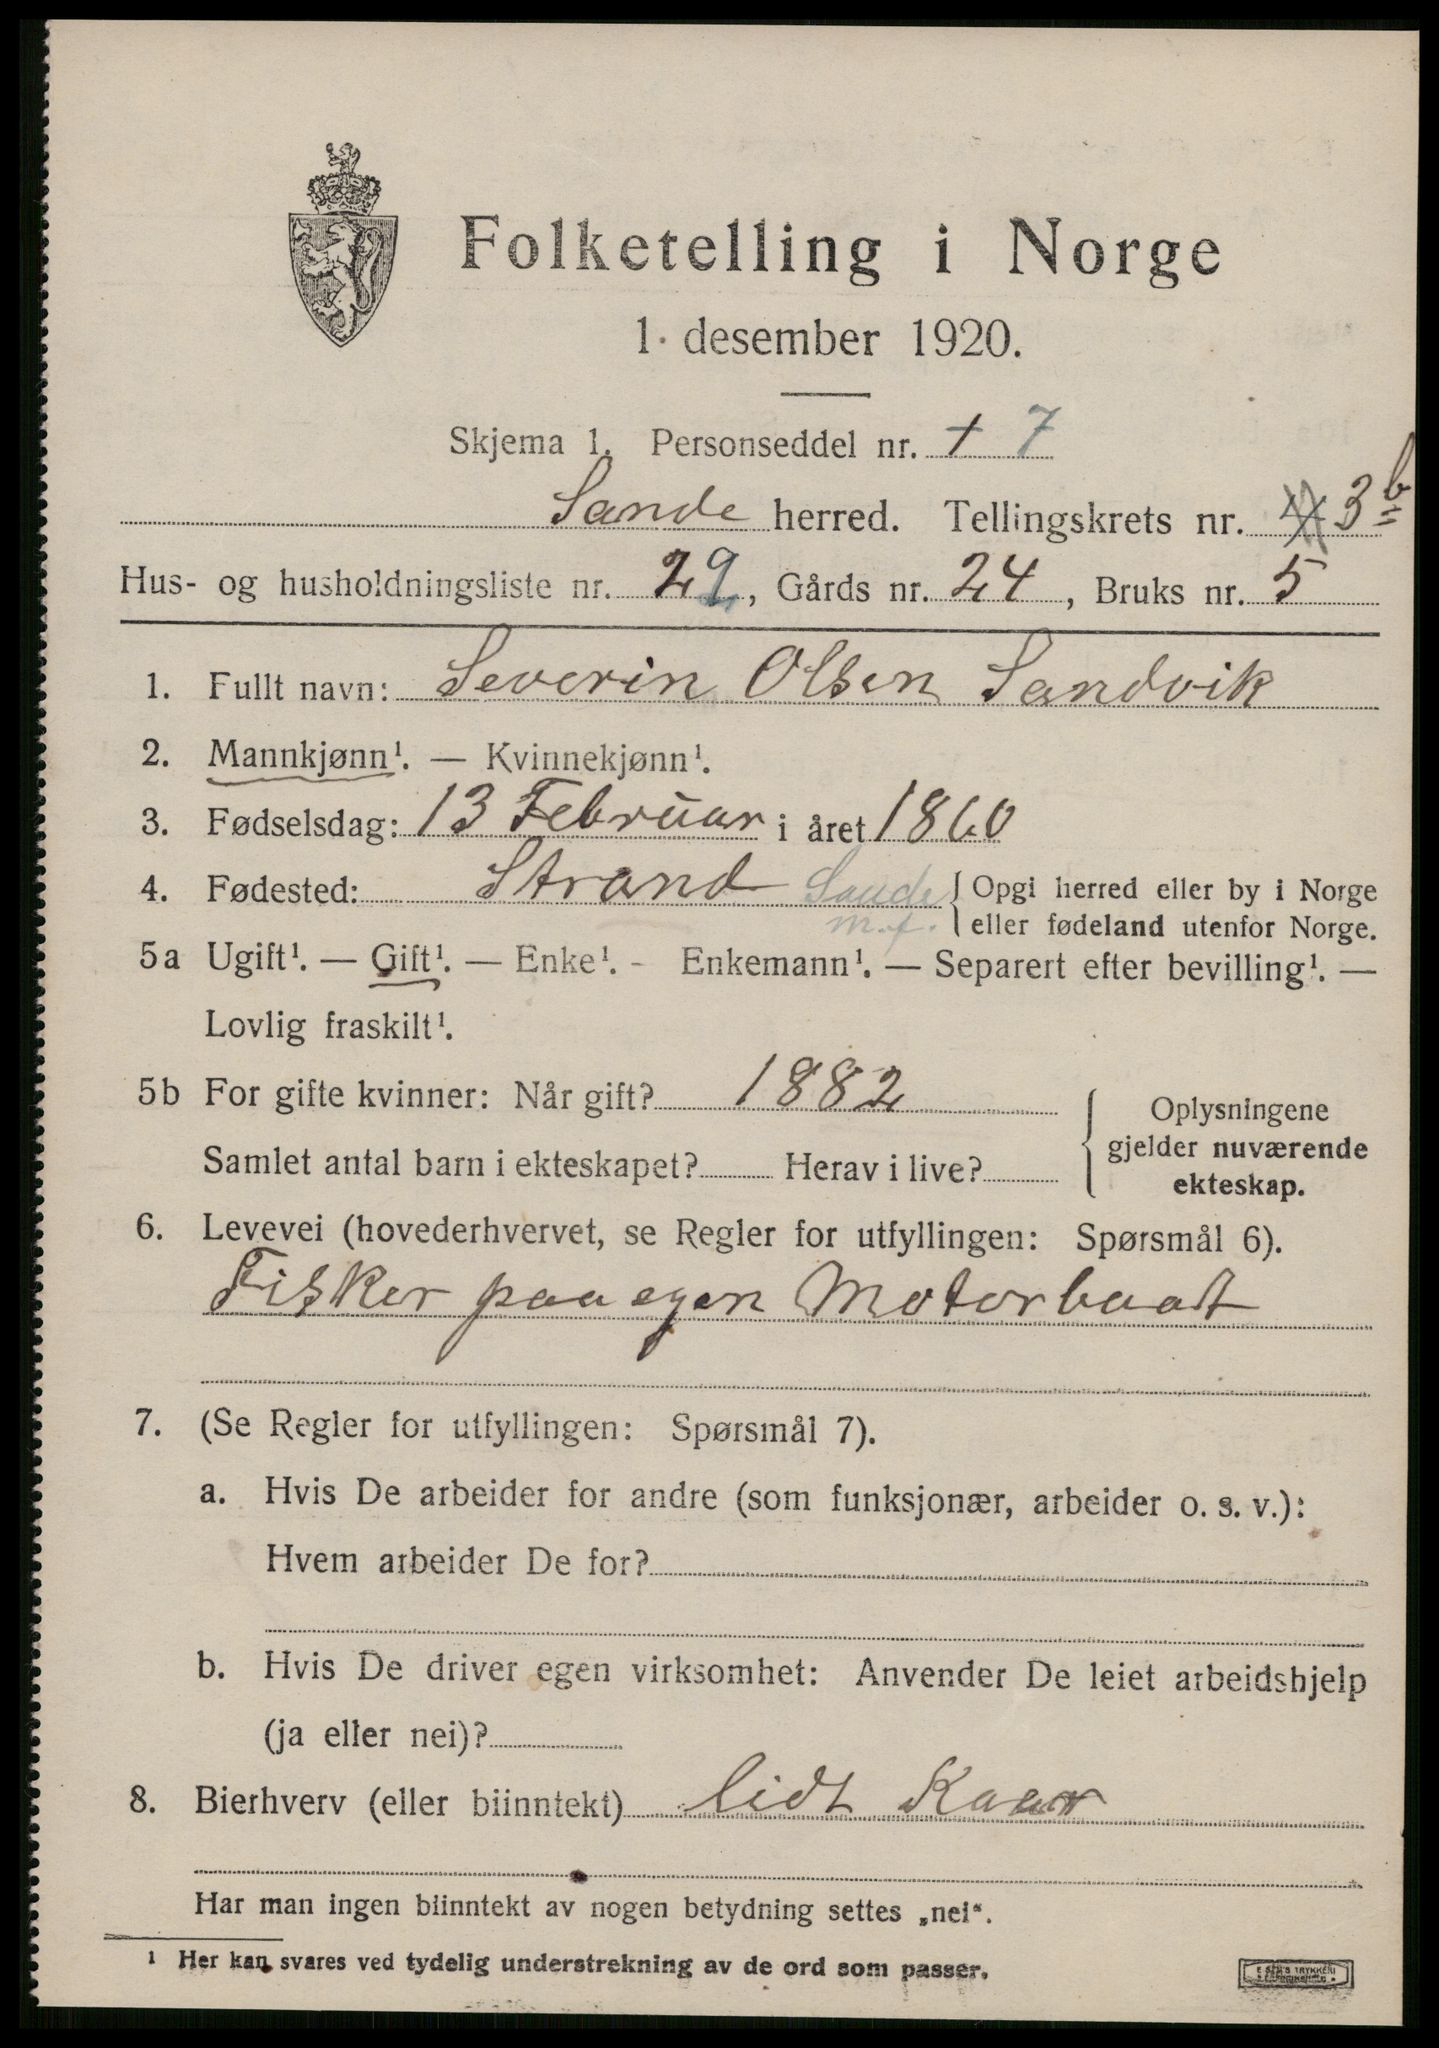 Folketelling i Norge
1. desember 1920.
Skjema 1. Personseddel nr. + 7
Sande herred. Tellingskrets nr. 3 b
Hus- og husholdningsliste nr. 29, Gårds nr. 24, Bruks nr. 5
1. Fullt navn: Severin Olsen Sandvik
2. Mannkjønn¹. — Kvinnekjønn¹.
3. Fødselsdag: 13 Februar i året 1860
4. Fødested: Strand Sande { Opgi herred eller by i Norge
m.f. eller fødeland utenfor Norge.
5a Ugift¹. — Gift¹. — Enke¹. - Enkemann¹. — Separert efter bevilling¹. —
Lovlig fraskilt¹.
5b For gifte kvinner: Når gift? 1882 { Oplysningene
gjelder nuværende
Samlet antal barn i ekteskapet? Herav i live?
ekteskap.
6. Levevei (hovederhvervet, se Regler for utfyllingen: Spørsmål 6).
Fisker paa egen Motorbaat
7. (Se Regler for utfyllingen: Spørsmål 7).
a. Hvis De arbeider for andre (som funksjonær, arbeider o. s. v.):
Hvem arbeider De for?
b. Hvis De driver egen virksomhet: Anvender De leiet arbeidshjelp
(ja eller nei)?
8. Bierhverv (eller biinntekt) lidt
Har man ingen biinntekt av nogen betydning settes „nei“.
¹ Her kan svares ved tydelig understrekning av de ord som passer.